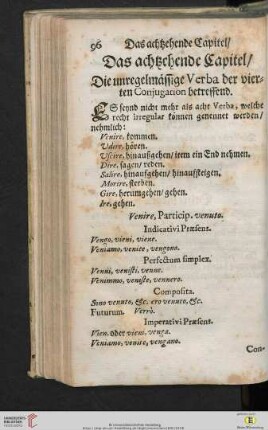 96 Das achtzehende Capitel/
Das achtzehende Capitel/
Die unregelmässige Verba der vier-
ten Conjugation betreffend.
ES seynd nicht mehr als acht Verba, welche
recht irregular können genennet werden/
nehmlich:
Venire. kommen.
Udire. hören.
Uscire. hinaußgehen/ item ein End nehmen.
Dire. sagen/ reden.
Salire. hinaufgehen/ hinaufsteigen.
Morire. sterben.
Gire. herumgehen/ gehen.
Ire. gehen.
Venire, Particip. venuto.
Indicativi Præsens.
Vengo, vieni, viene.
Veniamo, venite, vengono.
Perfectum simplex.
Venni, venisti, venne.
Venimmo, veniste, vennero.
Composita.
Sono venuto, &c. ero venuto, &c.
Futurum. Verrò.
Imperativi Præsens.
Vien. oder vieni. venga.
Veniamo, venite, vengano.
Con-